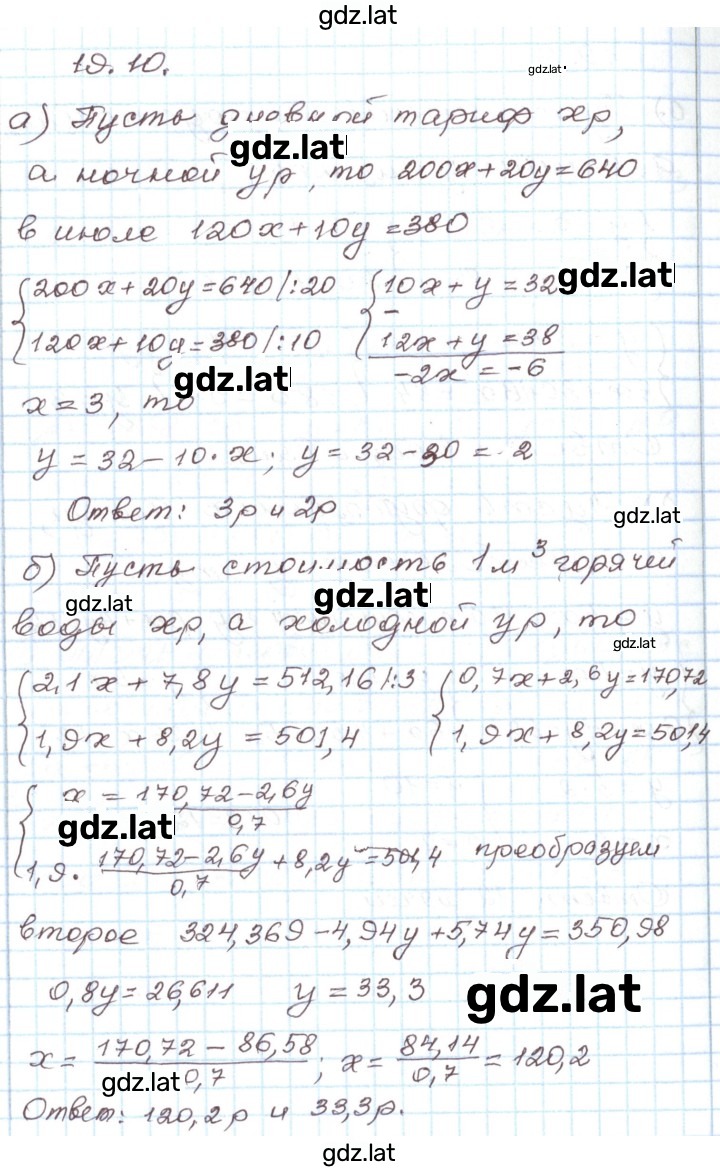 gdz.lat
19.10.
gdz.lat
а) Пусть дневной тариф хр,
gdz.lat
а ночной ур, то 200x+20y=640
в июле 120x+10y=380
{200x+20y=640 /:20 {10x+y=32
gdz.lat
{120x+10y=380 /:10 - 12x+y=38
-2x=-6
gdz.lat
x=3, то
y=32-10·x; y=32-30=2
Ответ: 3р и 2р
gdz.lat
б) Пусть стоимость 1м³ горячей
gdz.lat
gdz.lat
воды хр, а холодной ур, то
gdz.lat
{2,1x+7,8y=512,16 /:3 {0,7x+2,6y=170,72
{1,9x+8,2y=501,4 {1,9x+8,2y=501,4
{x=170,72-2,6y/0,7
gdz.lat
{1,9·170,72-2,6y/0,7+8,2y=501,4 преобразуем
второе 324,369-4,94y+5,74y=350,98
0,8y=26,611 y=33,3
gdz.lat
x=170,72-86,58/0,7; x=84,14/0,7=120,2
gdz.lat
Ответ: 120,2р и 33,3р.
gdz.lat